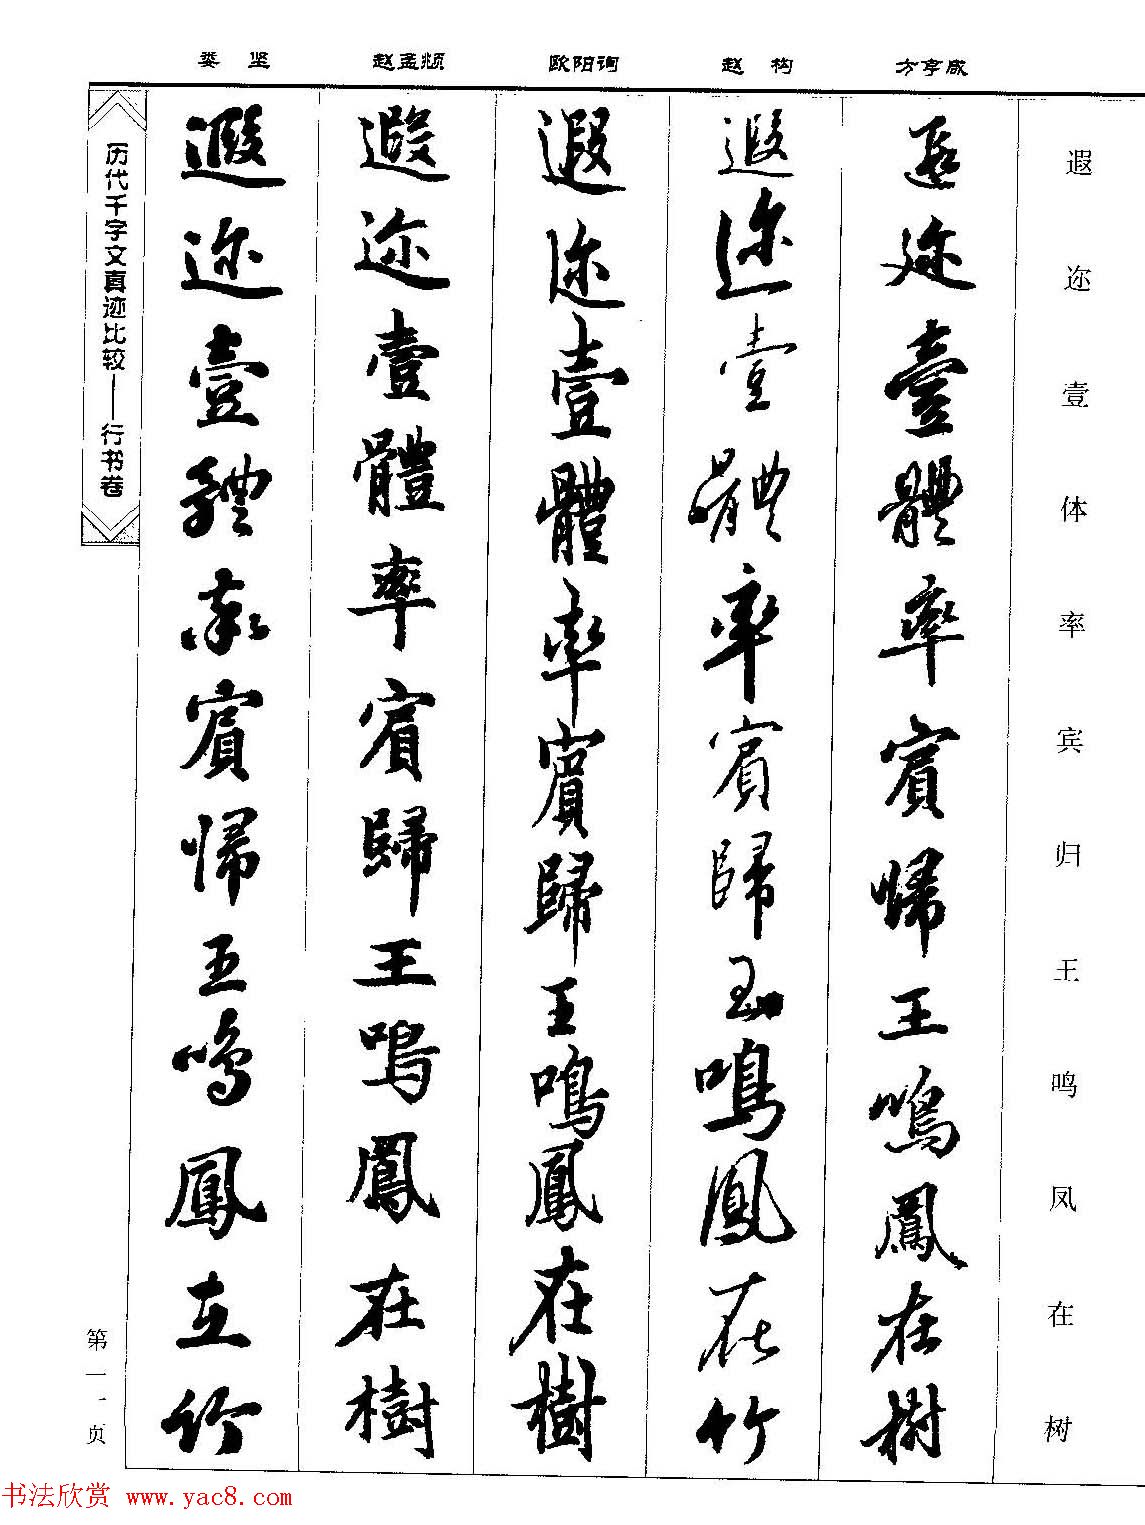 娄 坚
赵孟頫
欧阳询
赵 构
方亨咸
遐迩壹体率宾归王鸣凤在树
遐迩壹體率賓歸王鳴鳳在樹
遐迩壹體率賓歸王鳴鳳在竹
遐迩壹體率賓歸王鳴鳳在樹
遐迩壹體率賓歸王鳴鳳在樹
遐迩壹體率賓歸王鳴鳳在竹
历代千字文真迹比较——行书卷
第一一页
书法欣赏 www.yac8.com